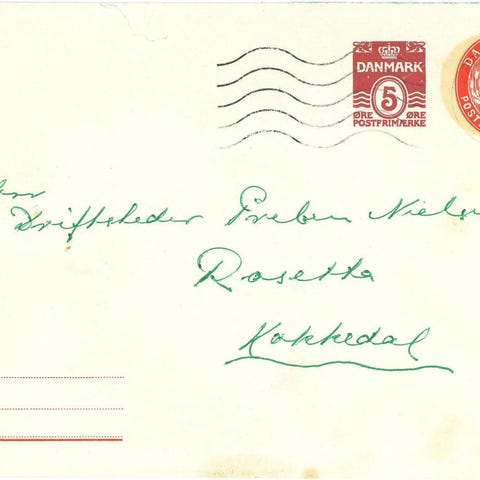 DANMARK
5
ØRE ØRE
POSTFRIMÆRKE
DA
POST
Driftsleder Preben Niels
Rosetta
Kokkedal